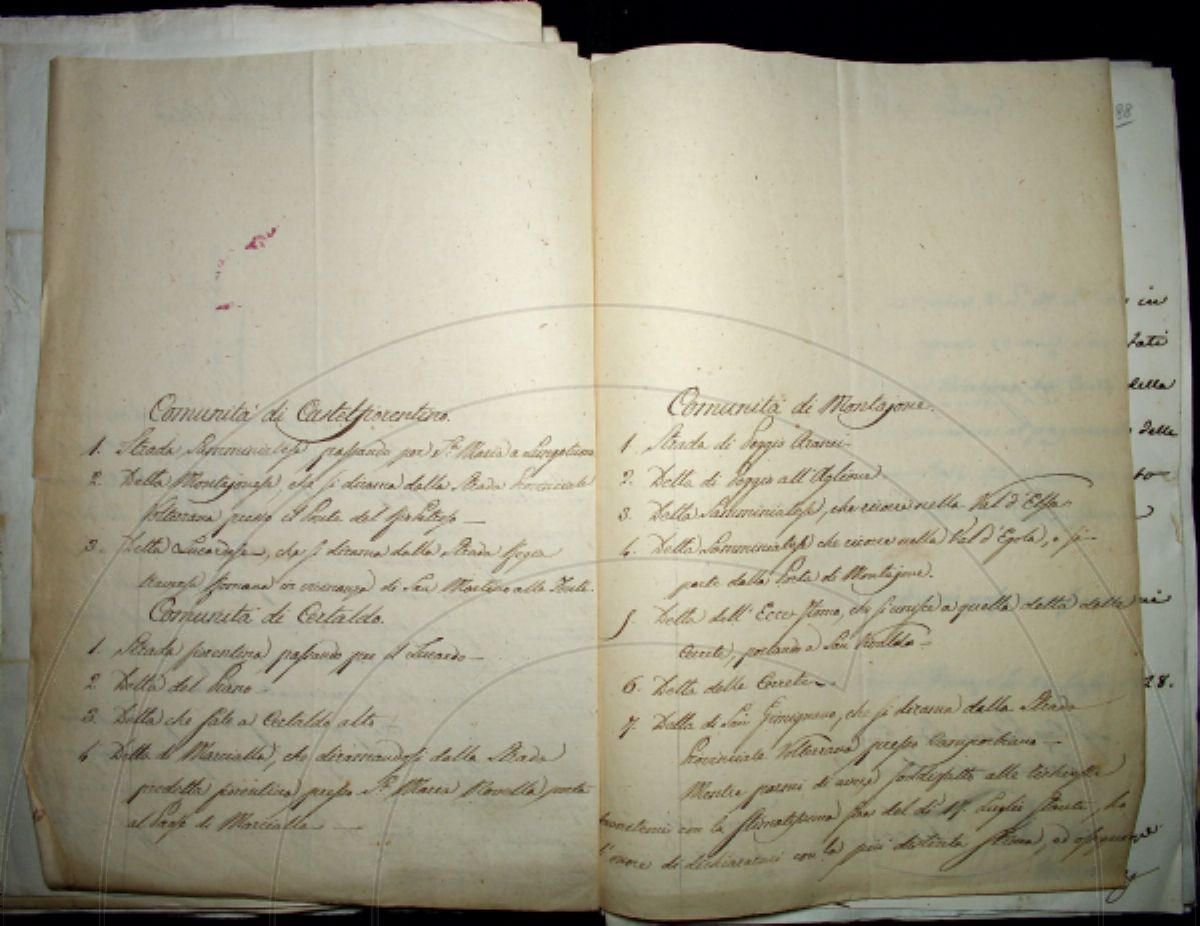 Comunità di Castelfiorentino.
1. Strada Samminiatese passando per S.ª Maria a Lungotuono
2. Detta Montajonese, che si dirama dalla Strada Provinciale
Volterrana presso il Ponte del
3. Detta Lucardese, che si dirama dalla Strada Regia
Romana in vicinanza di San Martino alla Fonte.
Comunità di Certaldo.
1. Strada fiorentina passando per il Lucardo —
2. Detta del Piano —
3. Detta che sale a Certaldo alto —
4 Detta di Marcialla, che diramandosi dalla Strada
predetta fiorentina presso S.ª Maria Novella, porta
al Paese di Marcialla —
Comunità di Montajone.
1. Strada di Poggio Aranci
2. Detta di Poggio all'Aglione
3. Detta Samminiatese, che ricorre nella Val d'Elsa
4. Detta Samminiatese che ricorre nella Val d'Egola, e si
parte dalla Porta di Montajone.
5. Detta dell'Ecce Homo, che si unisce a quella detta delle
Cerrete, portando a San Vivaldo
6. Detta delle Cerrete
7. Detta di San Gimignano, che si dirama dalla Strada
Provinciale Volterrana presso Camporbiano —
Mentre parmi di avere soddisfatto alle richieste
con la stimatissima sua del dì 17 Luglio stante, ho
l'onore di dichiararmi con la più distinta stima, ed ossequio
88
in
tati
della
delle
to
28.